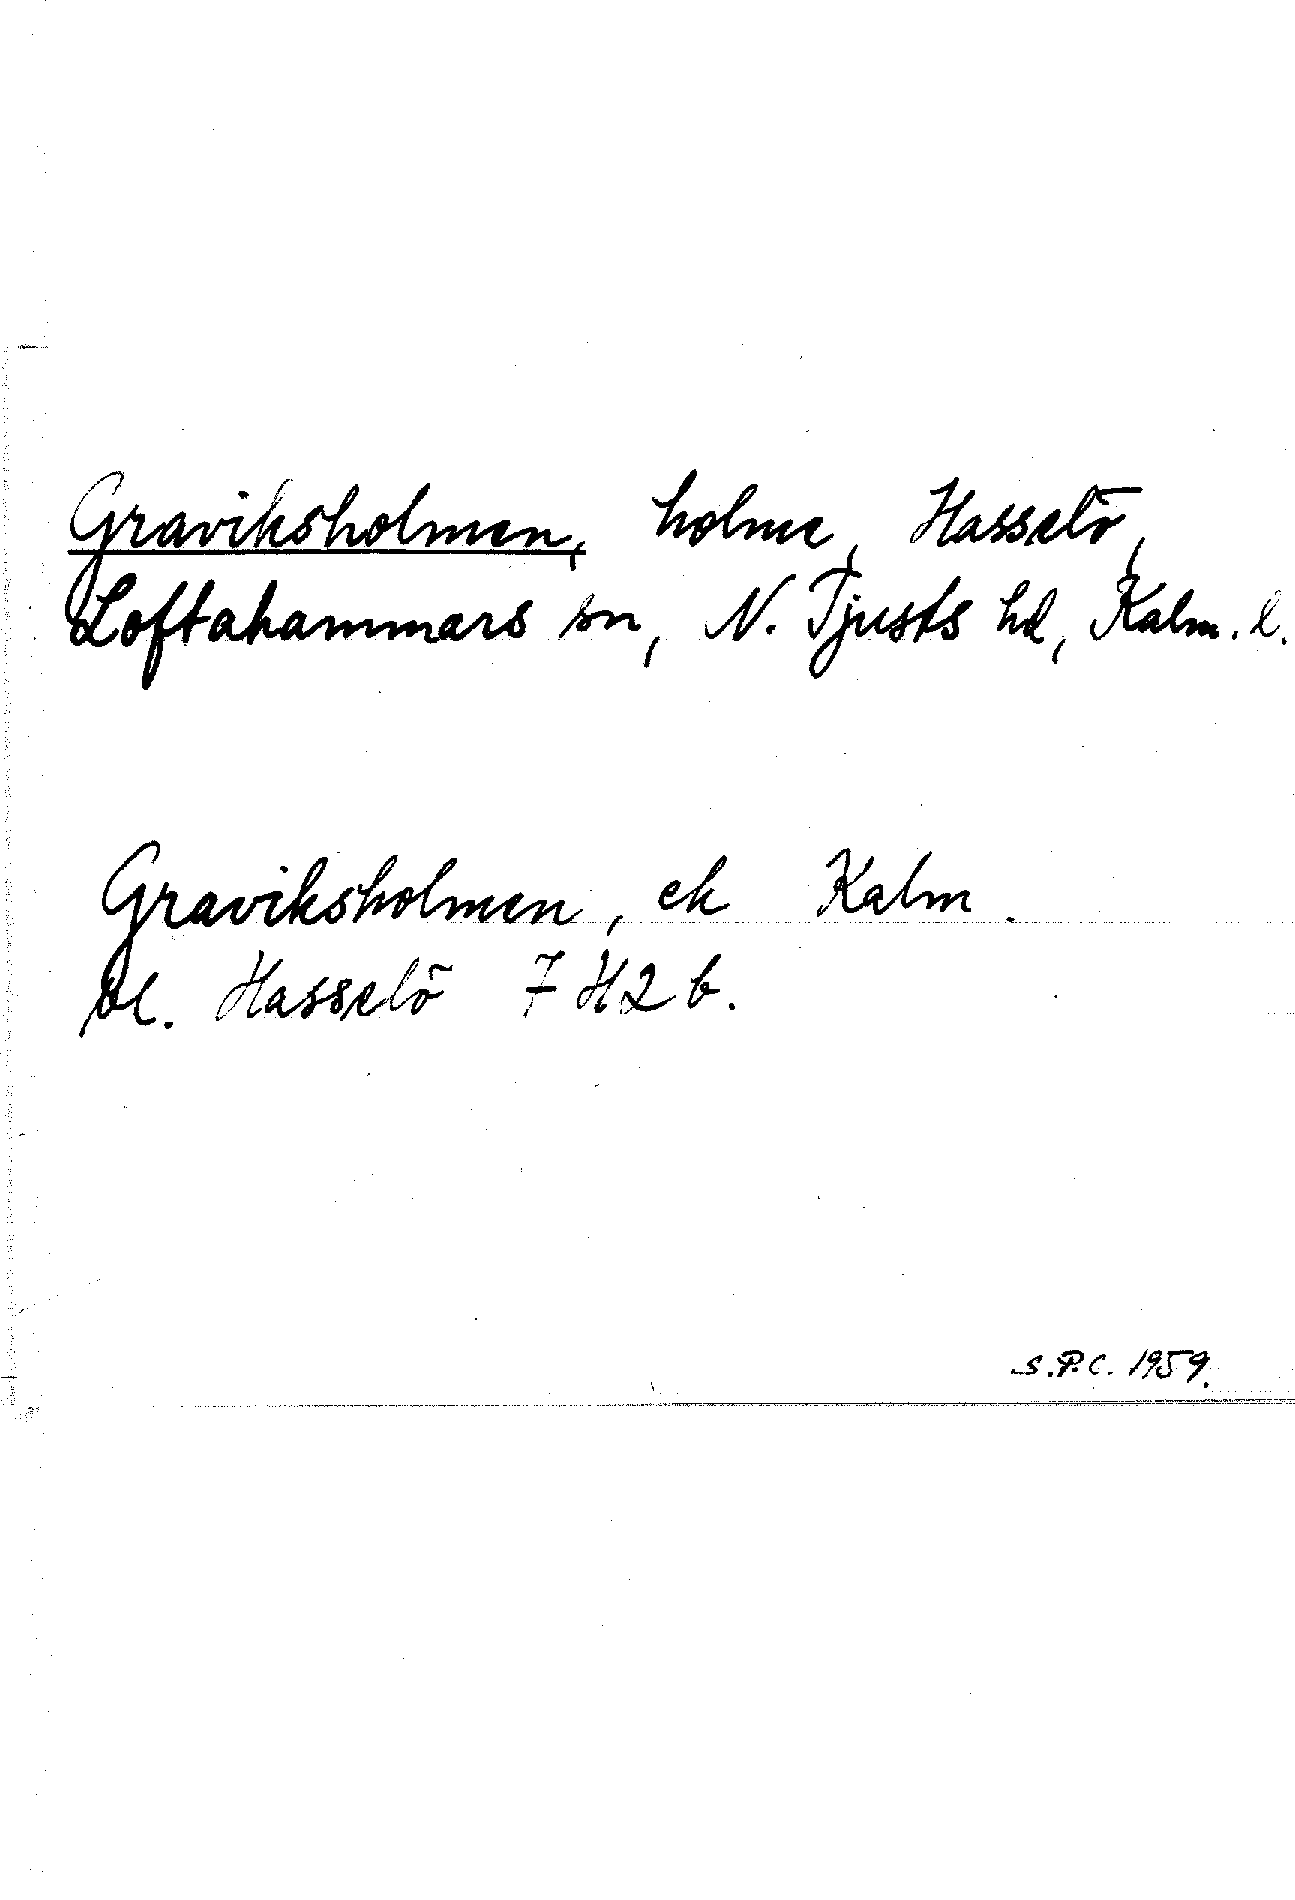 Graviksholmen, holme, Hasselö,
Loftahammars sn, N. Tjusts hd, Kalm. l.
Graviksholmen, ek Kalm.
bl. Hasselö 7H2b.
S.P.C. 1959.